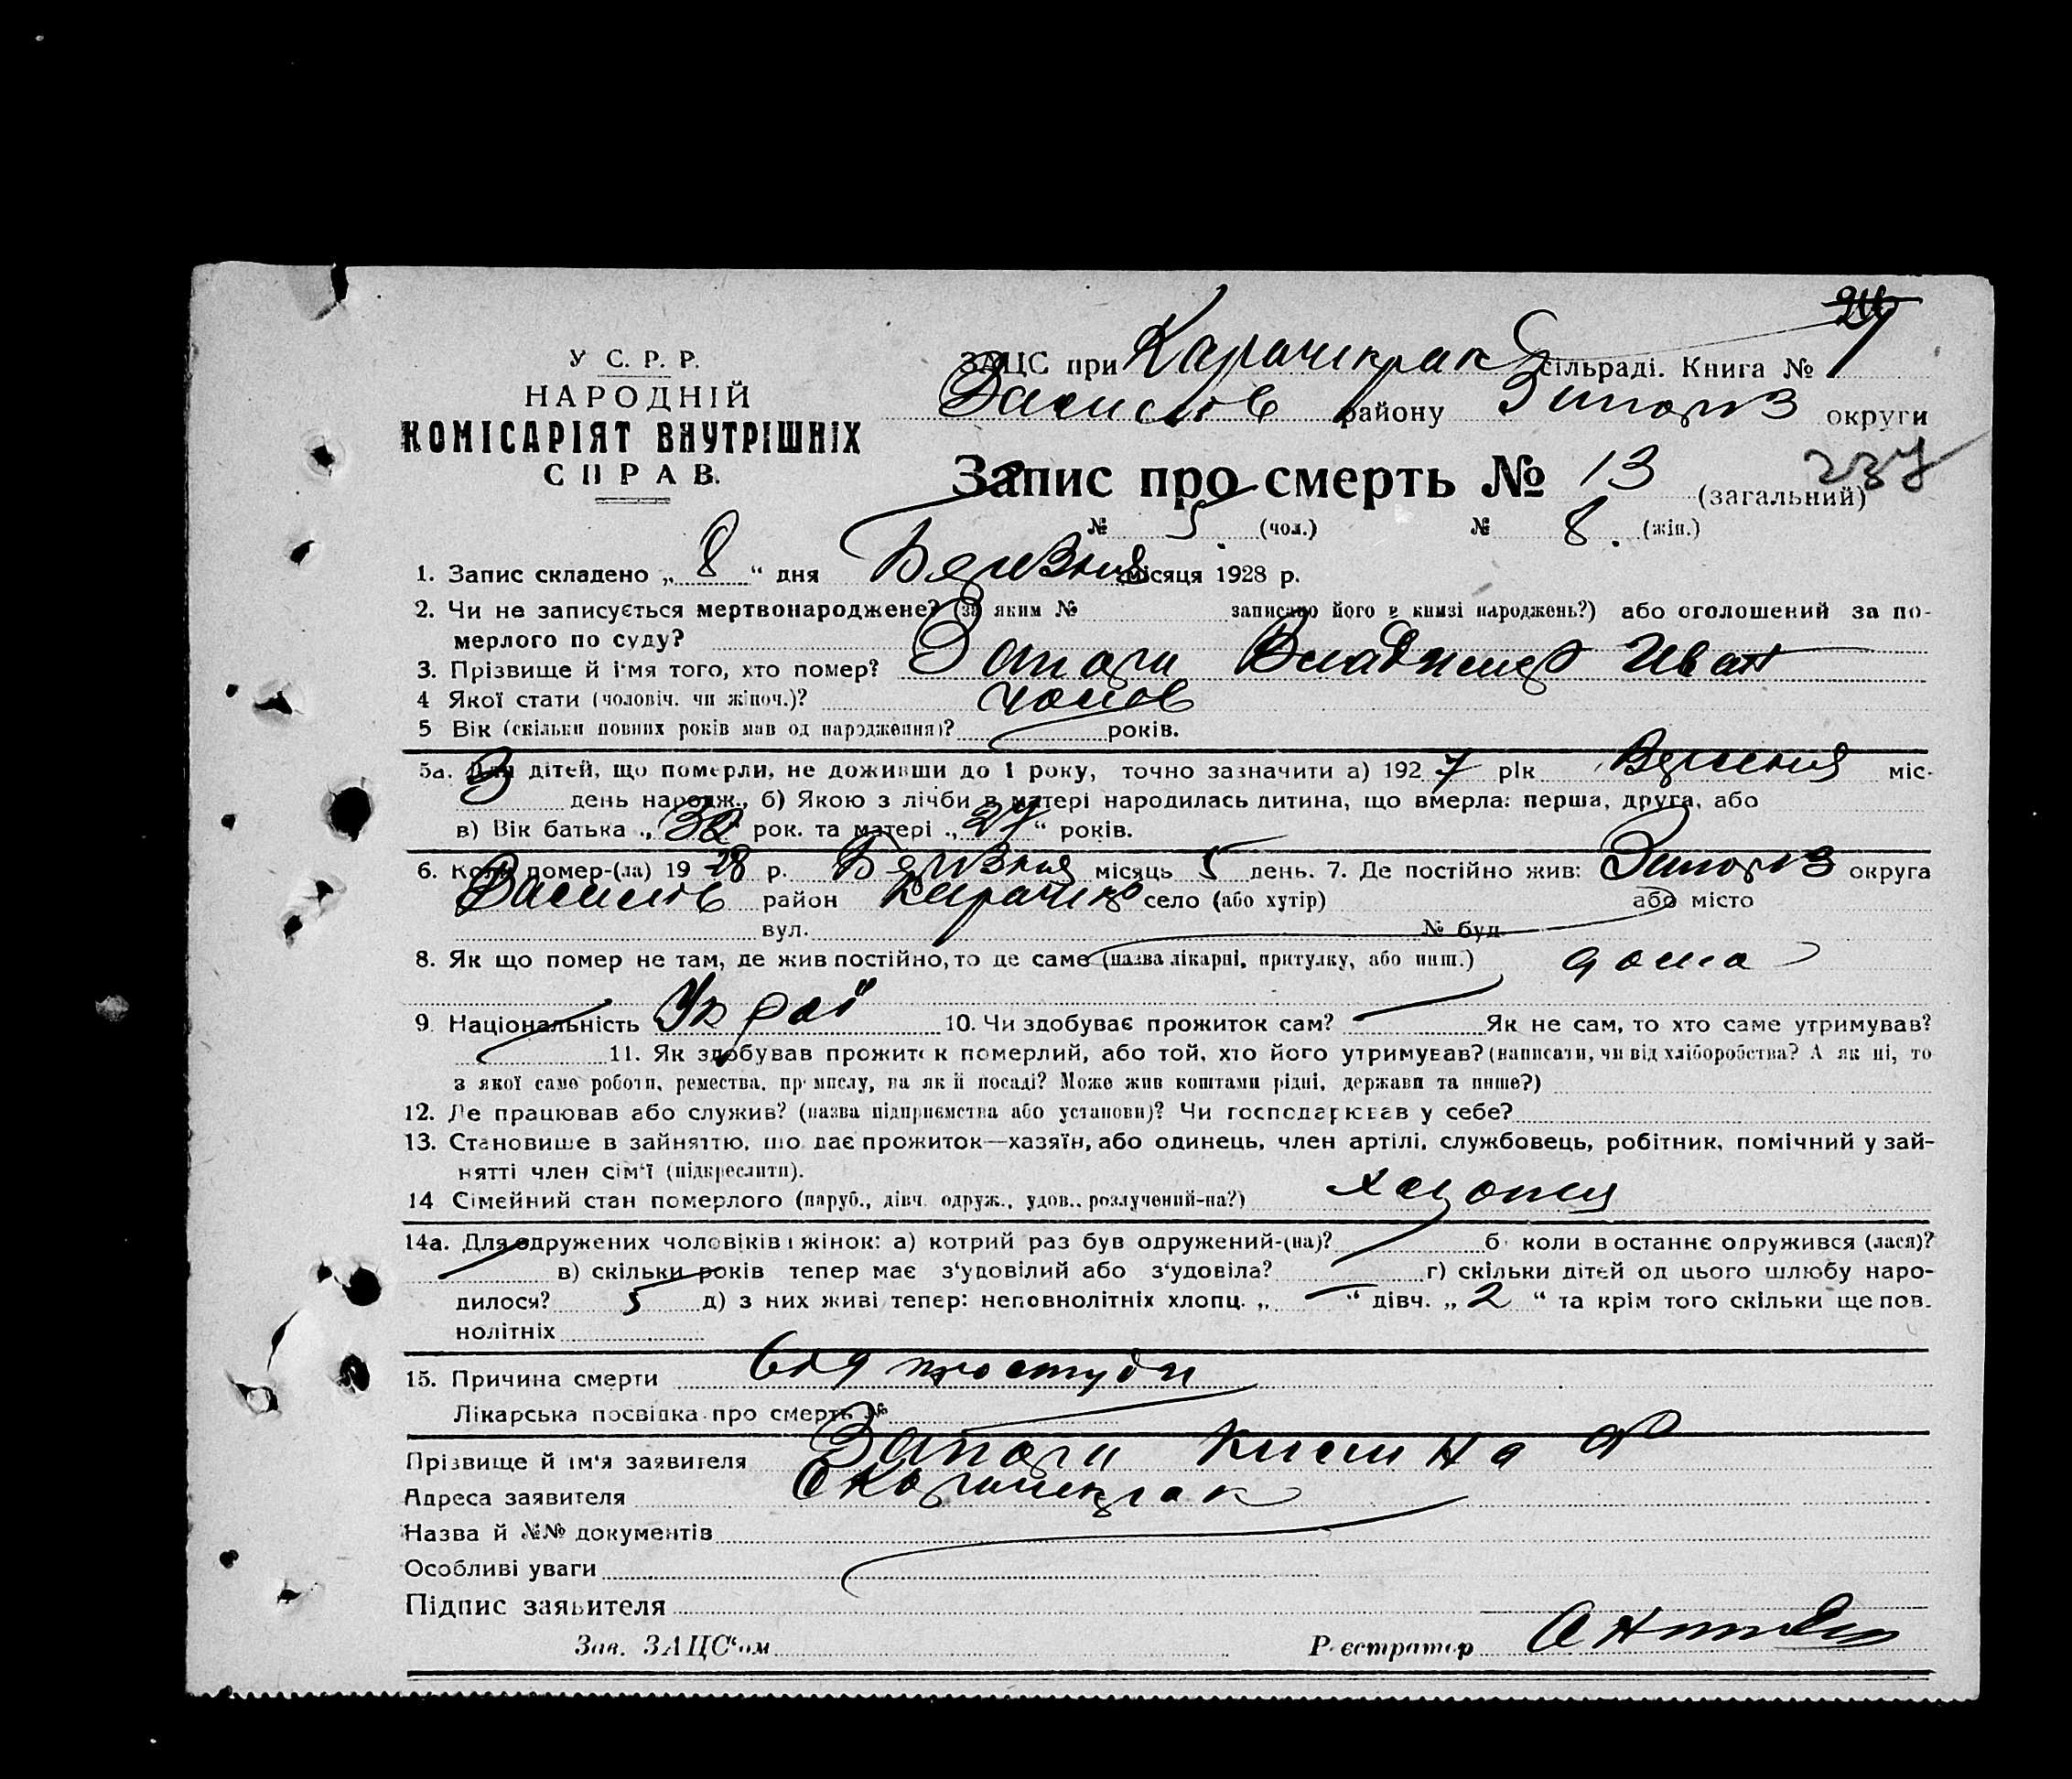 У С. Р. Р.
НАРОДНІЙ
КОМІСАРІЯТ ВНУТРІШНІХ
СПРАВ.
ЗАЦС при Карачекрак сільраді. Книга №
Василів району Запоріз округи
Запис про смерть № 13 (загальний) 237
№ 5 (чол.) № 8 (жін.)
1. Запис складено „ 8 “ дня Березня місяця 1928 р.
2. Чи не записується мертвонароджене? (за яким № записано його в книзі народжень?) або оголошений за по-
мерлого по суду?
3. Прізвище й ім'я того, хто помер? Запара Владимер Иван
4 Якої стати (чоловіч. чи жіноч.)? чолов
5 Вік (скільки повних років мав од народження)? років.
5а. Для дітей, що померли, не доживши до 1 року, точно зазначити а) 192 7 рік Вересня міс-
3 день народж., б) Якою з лічби в матері народилась дитина, що вмерла: перша, друга, або
в) Вік батька „ 32 рок. та матері „ 27 “ років.
6. Коли помер-(ла) 19 28 р. Березня місяць 5 день. 7. Де постійно жив: Запоріз округа
Василів район Карачек село (або хутір) або місто
вул. № буд.
8. Як що помер не там, де жив постійно, то де саме (назва лікарні, притулку, або инш.) дома
9. Національність Украї 10. Чи здобуває прожиток сам? Як не сам, то хто саме утримував?
11. Як здобував прожиток померлий, або той, хто його утримував? (написати, чи від хліборобства? А як ні, то
з якої само роботи, ремества, промислу, на якій посаді? Може жив коштами рідні, держави та инше?)
12. Де працював або служив? (назва підприємства або установи)? Чи господарював у себе?
13. Становище в зайняттю, що дає прожиток—хазяїн, або одинець, член артілі, службовець, робітник, помічний у зай-
нятті член сім'ї (підкреслити).
14 Сімейний стан померлого (паруб., дівч. одруж., удов., розлучений-на?)
14а. Для одружених чоловіків і жінок: а) котрий раз був одружений-(на)? б) коли востаннє одружився (лася)?
в) скільки років тепер має з'удовілий або з'удовіла? г) скільки дітей од цього шлюбу наро-
дилося? 5 д) з них живі тепер: неповнолітніх хлопц. „ “ дівч. „ 2 “ та крім того скільки ще пов.
нолітніх
15. Причина смерти від простуди
Лікарська посвідка про смерть №
Прізвище й ім'я заявителя Запара
Адреса заявителя
Назва й №№ документів
Особливі уваги
Підпис заявителя
Зав. ЗАЦС'ом Реєстратор